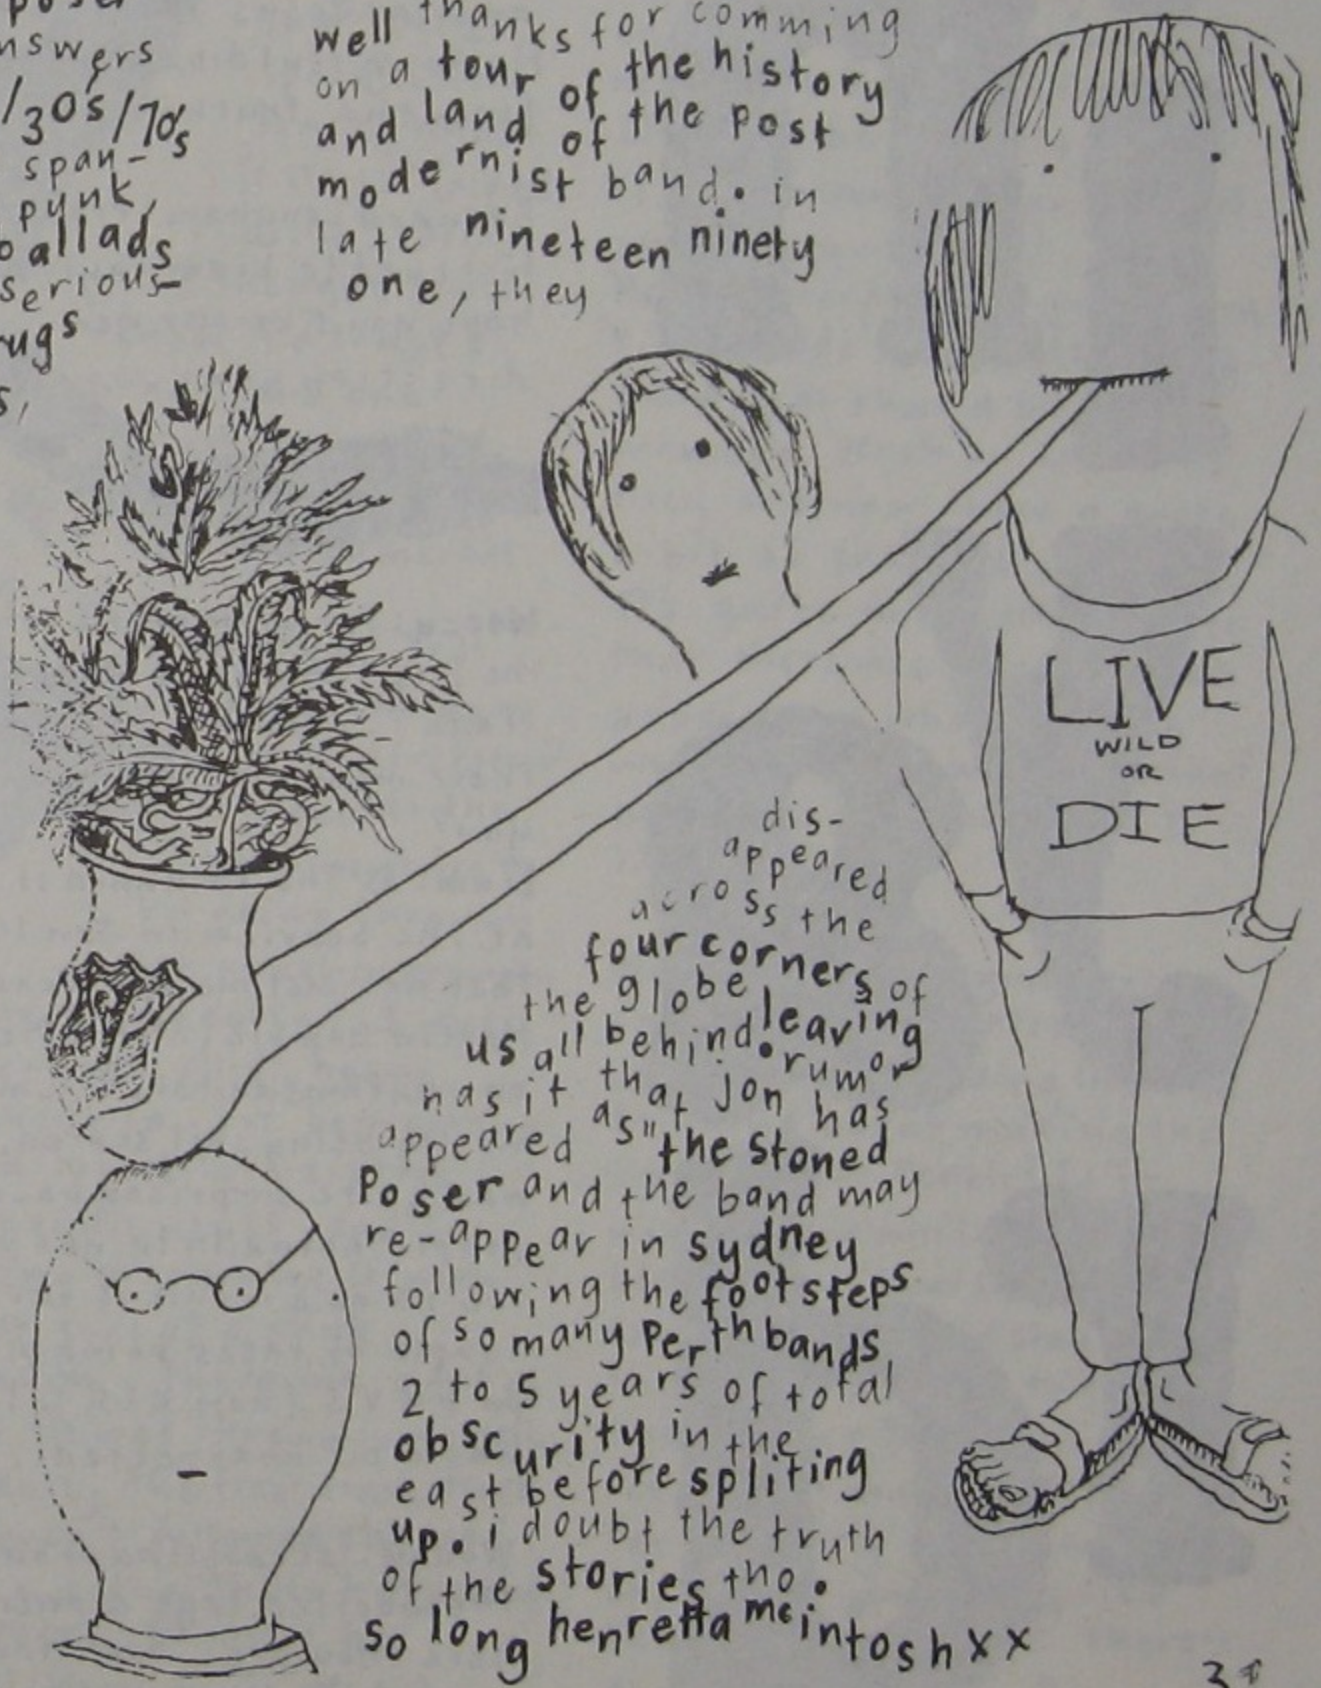 nswers
/30's/70's
span-
punk,
ballads
serious-
rugs
s,
well thanks for comming
on a tour of the history
and land of the post
modernist band. in
late nineteen ninety
one, they
LIVE
WILD
OR
DIE
dis-
appeared
across the
four corners of
the globe leaving
us all behind. rumor
has it that jon has
appeared as "the stoned
poser and the band may
re-appear in sydney
following the footsteps
of so many Perth bands,
2 to 5 years of total
obscurity in the
east before spliting
up. i doubt the truth
of the stories tho.
so long henretta mcintosh xx